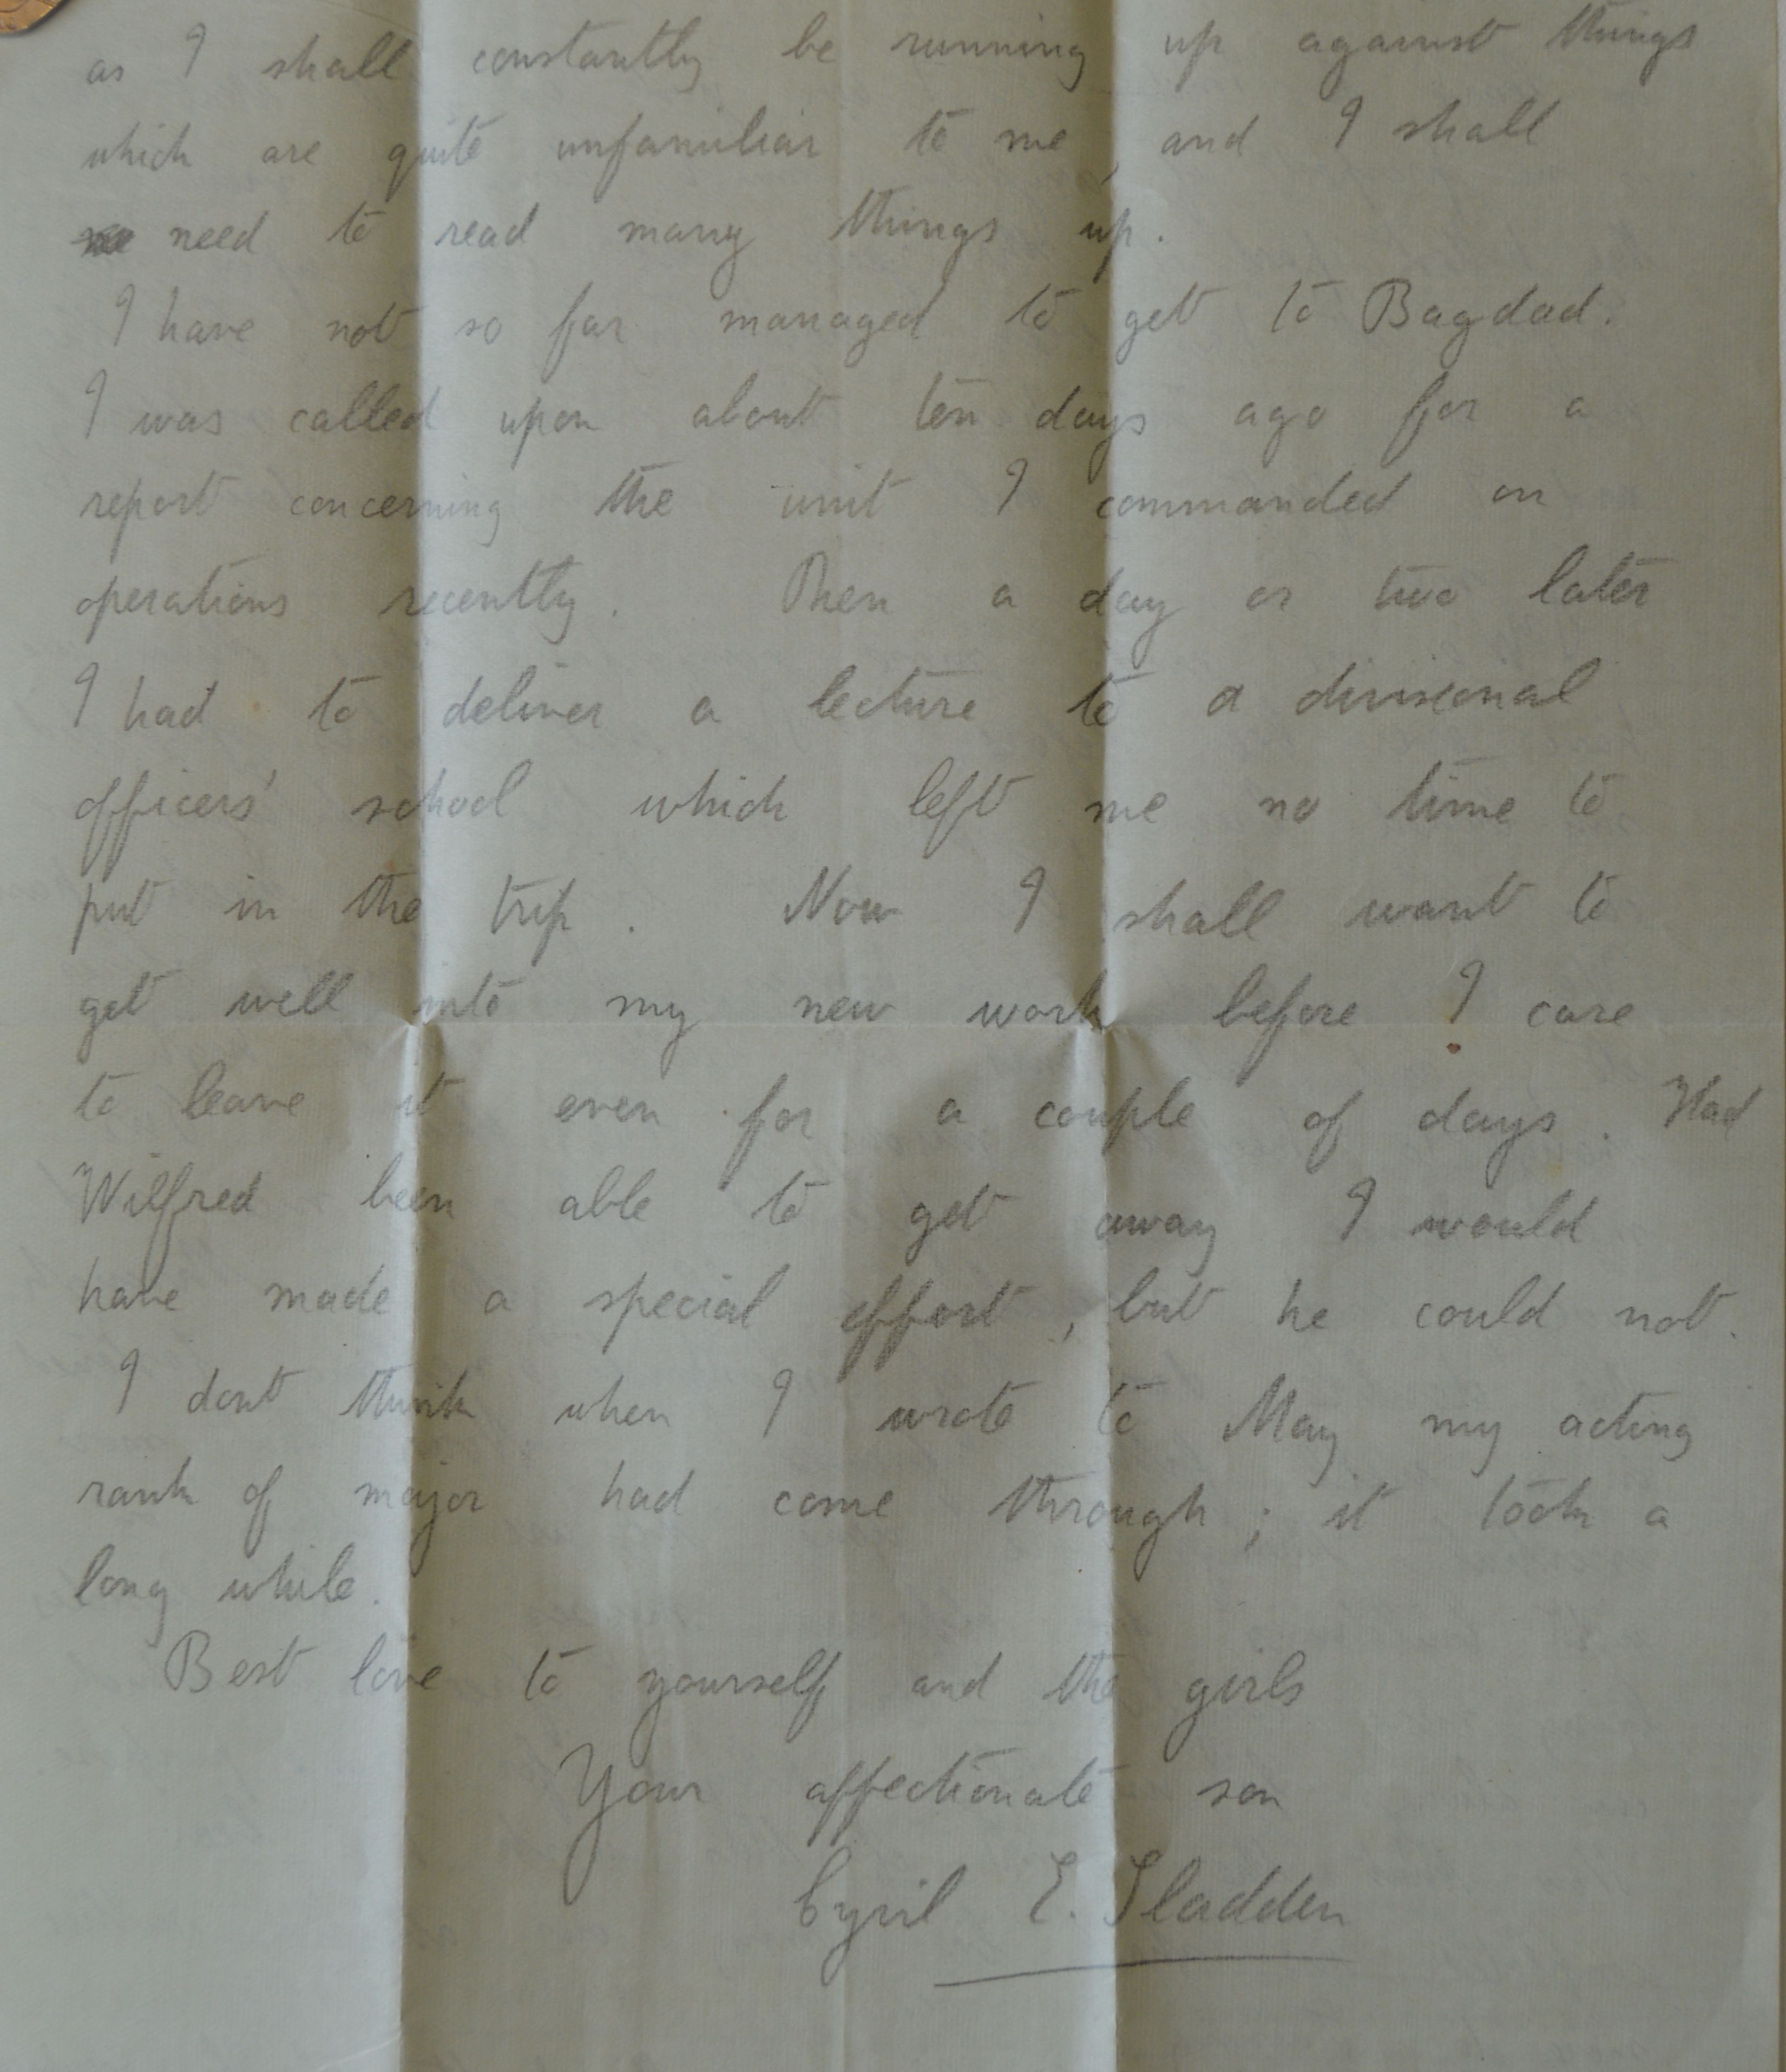 as I shall constantly be running up against things
which are quite unfamiliar to me, and I shall
need to read many things up.
I have not so far managed to get to Bagdad.
I was called upon about ten days ago for a
report concerning the unit I commanded on
operations recently. Then a day or two later
I had to deliver a lecture to a divisional
officers' school which left me no time to
put in the trip. Now I shall want to
get well into my new work before I care
to leave it even for a couple of days. Had
Wilfred been able to get away I would
have made a special effort, but he could not.
I dont think when I wrote to May my acting
rank of major had come through; it took a
long while.
Best love to yourself and the girls
Your affectionate son
Cyril E. Sladden